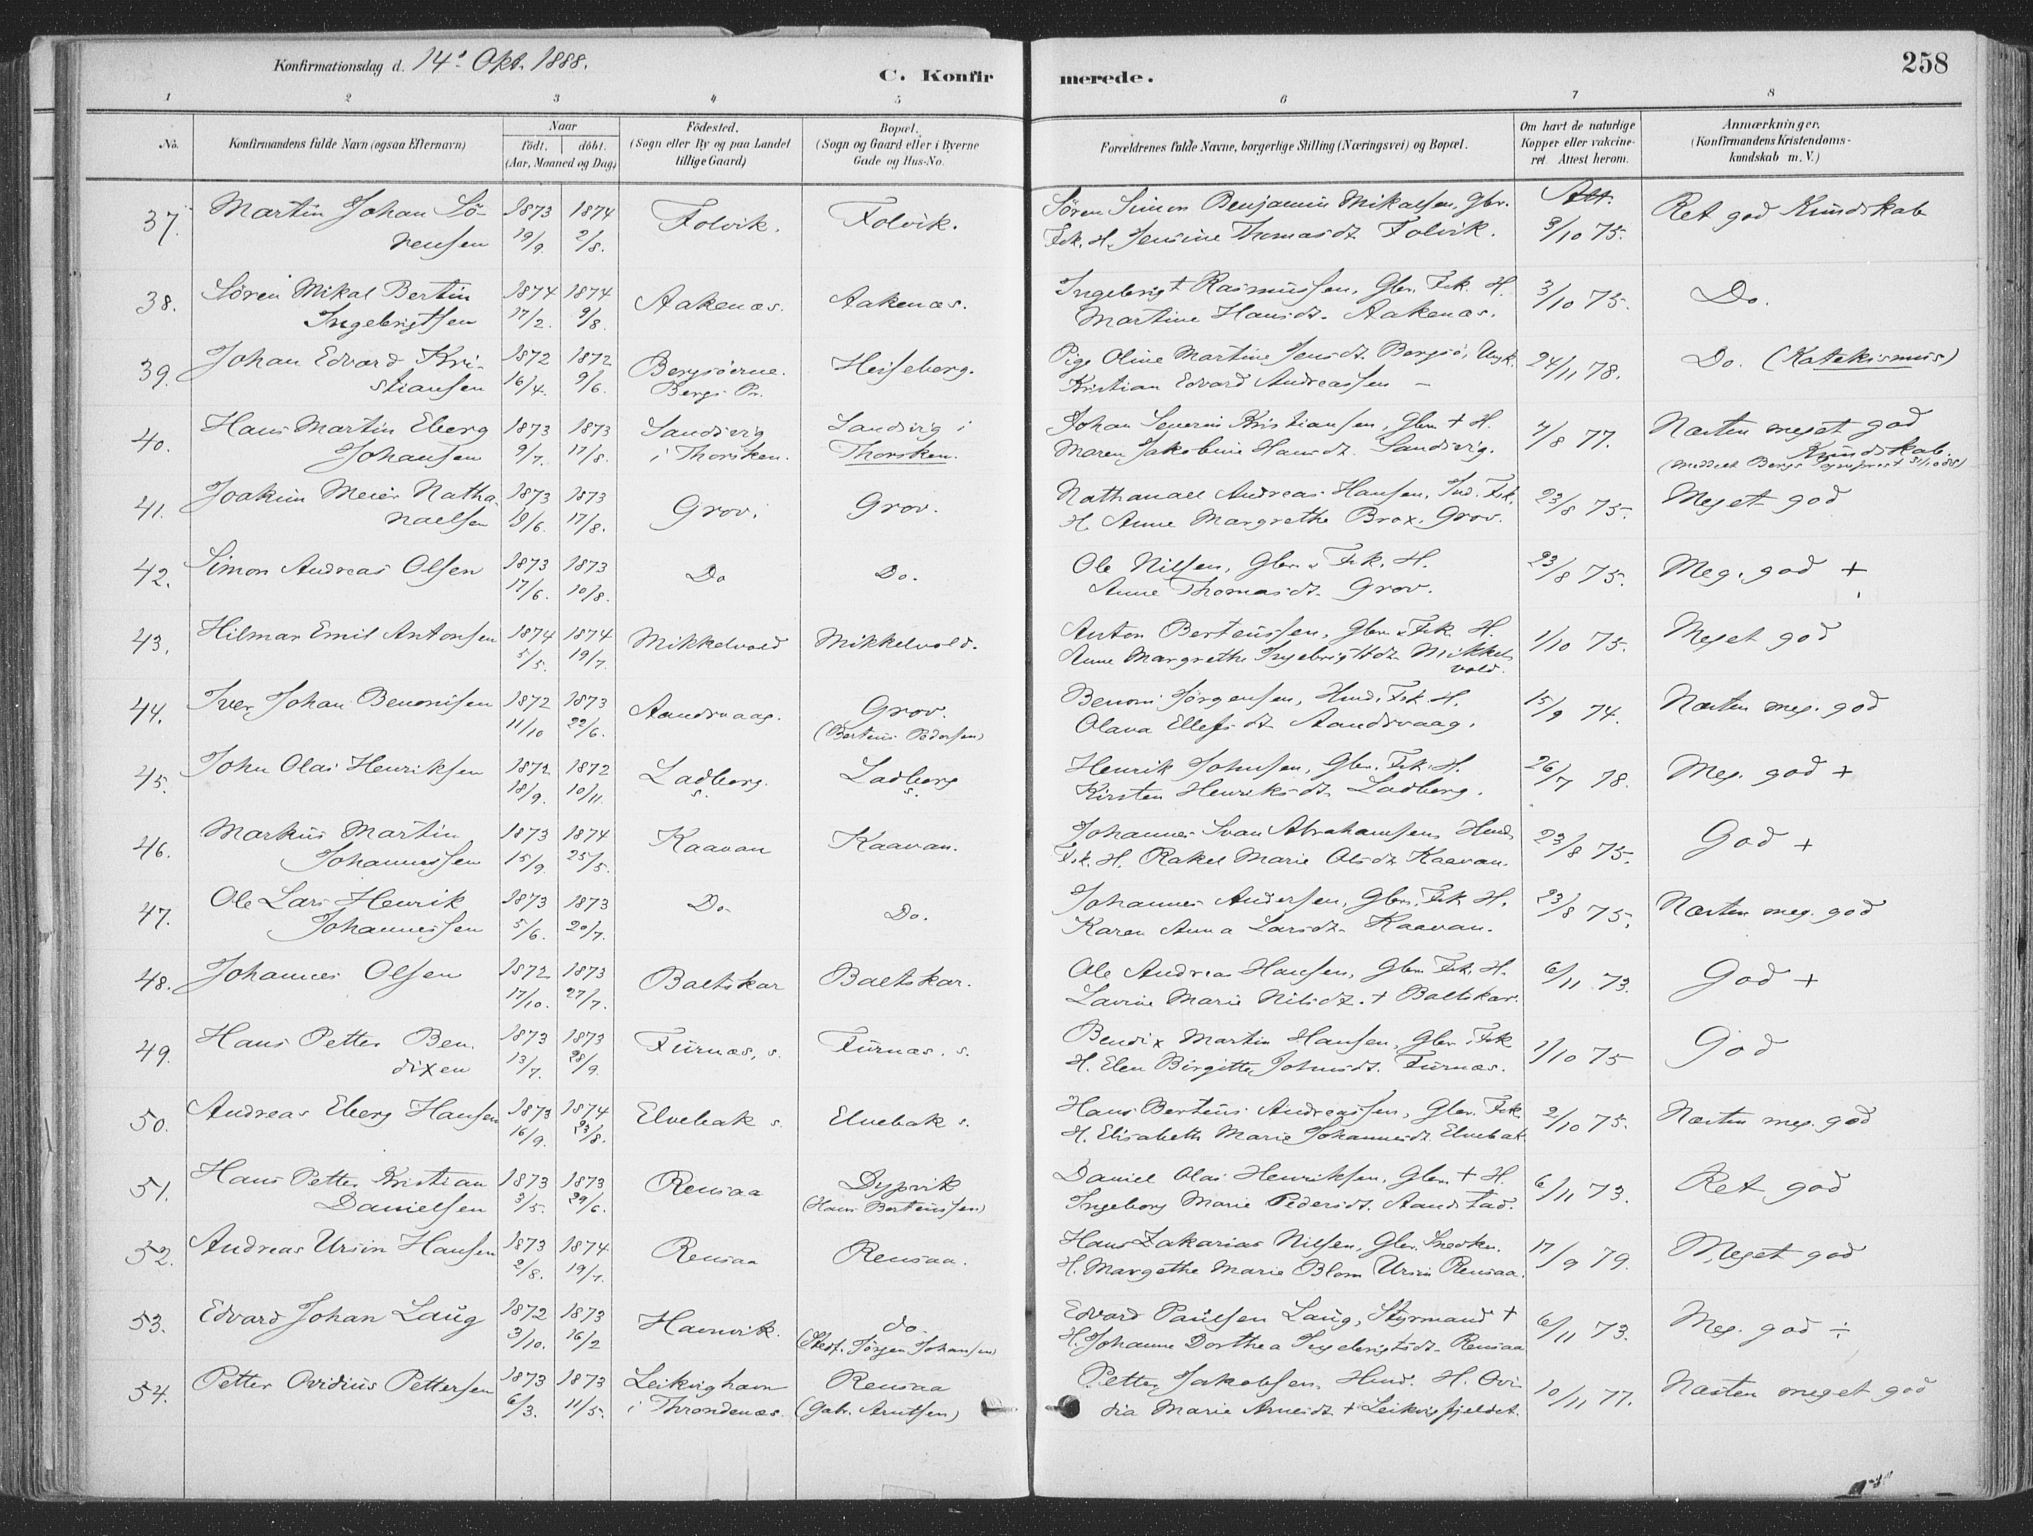 Konfirmationsdag d. 14de Okt. 1888.
C. Konfirmerede.
258
1 2 3 4 5 6 7 8
No.
Konfirmandens fulde Navn (ogsaa Efternavn)
Naar
födt. döbt.
(Aar, Maaned og Dag)
Födested.
(Sogn eller By og paa Landet
tillige Gaard)
Bopæl.
(Sogn og Gaard eller i Byerne
Gade og Hus-No.
Forældrenes fulde Navne, borgerlige Stilling (Næringsvei) og Bopæl.
Om havt de naturlige
Kopper eller vakcine-
ret. Attest herom.
Anmærkninger.
(Konfirmandens Kristendoms-
kundskab m. V.)
37. Martin Johan Sö- 1873 1874 Folvik. Folvik. Søren Simon Benjamin Mikalsen, Gbr. Att. Ret god Kundskab
rensen 19/9 2/8. Fsk. H. Jensine Thomasdt. Folvik. 3/10 75.
38. Søren Mikal Bertin 1874 1874 Aakenæs. Aakenæs. Ingebrigt Rasmussen, Gbr. Fsk. H. 3/10 75. Do.
Ingebrigtsen 17/2. 9/8. Martine Hansdt. Aakenæs.
39. Johan Edvard Kri- 1872 1872 Bergsöerne. Heiseberg. Pige Oline Martine Jensdt. Bergsö, Ungk. 24/11 78. Do. (Katekismus)
stiansen 16/4. 9/6. Bergs Pr. Kristian Edvard Andreassen –
40. Hans Martin Eberg 1873 1873 Sandvig Sandvig i Johan Severin Kristiansen, Gbr. + H. 7/8 77. Næsten meget god
Johansen 9/7. 17/8. i Thorsken. Thorsken. Maren Jakobine Hansdt. Sandvig. Kundskab.
41. Joakim Meier Natha- 1873 1873 Grov. Grov. Nathanael Andreas Hansen, Ind. Fsk. 23/8 75. Meget god
naelsen 19/6. 17/8. H. Anne Margrethe Brox. Grov.
42. Simon Andreas Olsen 1873 1873 Do Do. Ole Nilsen, Gbr. Fsk. H. 23/8 75. Meg. god +
17/6. 10/8. Anne Thomasdt. Grov.
43. Hilmar Emil Antonsen 1874 1874 Mikkelvold Mikkelvold. Anton Berteussen, Gbr. Fsk. H. 1/10 75. Meget god
5/5. 19/7. Anne Margrethe Ingebrigtsdt. Mikkel
vold.
44. Iver Johan Benonisen 1872 1873 Aandsvaag. Grov. Benoni Jørgensen, Hmd. Fsk. H. 15/9 74. Næsten meg. god
11/10 22/6. (Berteus Pedersen) Olava Ellefsdt. Aandsvaag.
45. John Olai Henriksen 1872 1872 Ladberg. Ladberg Henrik Johnsen, Gbr. Fsk. H. 26/7 78. Meg. god +
18/9. 10/11. s. s. Kirsten Henriksdt. Ladberg.
46. Markus Martin 1873 1874 Kaavan Kaavan. Johannes Ivar Abrahamsen Hmd. 23/8 75. God +
Johannessen 15/9. 25/5. Fsk. H. Rakel Marie Olsdt. Kaavan.
47. Ole Lars Henrik 1873 1873 Do Do. Johannes Andersen, Gbr. Fsk. H. 23/8 75. Næsten meg. god
Johannessen 5/6. 20/7. Karen Anna Larsdt. Kaavan.
48. Johannes Olsen 1872 1873 Baltskar Baltskar. Ole Andreas Hansen, Gbr. Fsk. H. 6/11 73. God +
17/10. 27/7. Lavine Marie Nilsdt. + Baltskar.
49. Hans Petter Ben- 1873 1873 Furnæs, s. Furnæs. s. Bendix Martin Hansen, Gbr. Fsk 1/10 75 God
dixen 13/7. 28/9. H. Elen Birgitte Johnsdt. Furnæs.
50. Andreas Eberg Hansen 1873 1874 Elvebak s. Elvebak s. Hans Berteus Andreassen, Gbr. Fsk. 2/10 75. Næsten meg. god
16/9. 23/8. H. Elisabeth Marie Johannesdt. Elvebak
51. Hans Petter Kristian 1873 1873 Rensaa Dypvik Daniel Olai Henriksen, Gbr. + H. 6/11 73. Ret god
Danielsen 3/5. 29/6. (Hans Berteussen) Ingeborg Marie Pedersdt. Aandstad.
52. Andreas Ursin Hansen 1873 1874 Rensaa Rensaa. Hans Zakarias Nilsen, Gbr. Snedker. 17/9 79. Meget god
2/8. 19/7. H. Margethe Marie Blom Ursin Rensaa.
53. Edvard Johan Laug 1872 1873 Havnvik. do. Edvard Paulsen Laug, Styrmand + 6/11 73. Meg. god ÷
3/10. 16/2 (Stedf. Jörgen Johansen) H. Johanne Dorthea Ingebrigtsdt. Rensaa
54. Petter Ovidius Pettersen 1873 1873 Leikvighavn Rensaa Petter Jakobsen Hmd. H. Ovi- 10/11 77. Næsten meget god
6/3. 11/5. i Throndenæs. (Gabr. Arntsen) dia Marie Arnesdt + Leikvigfjeldet.